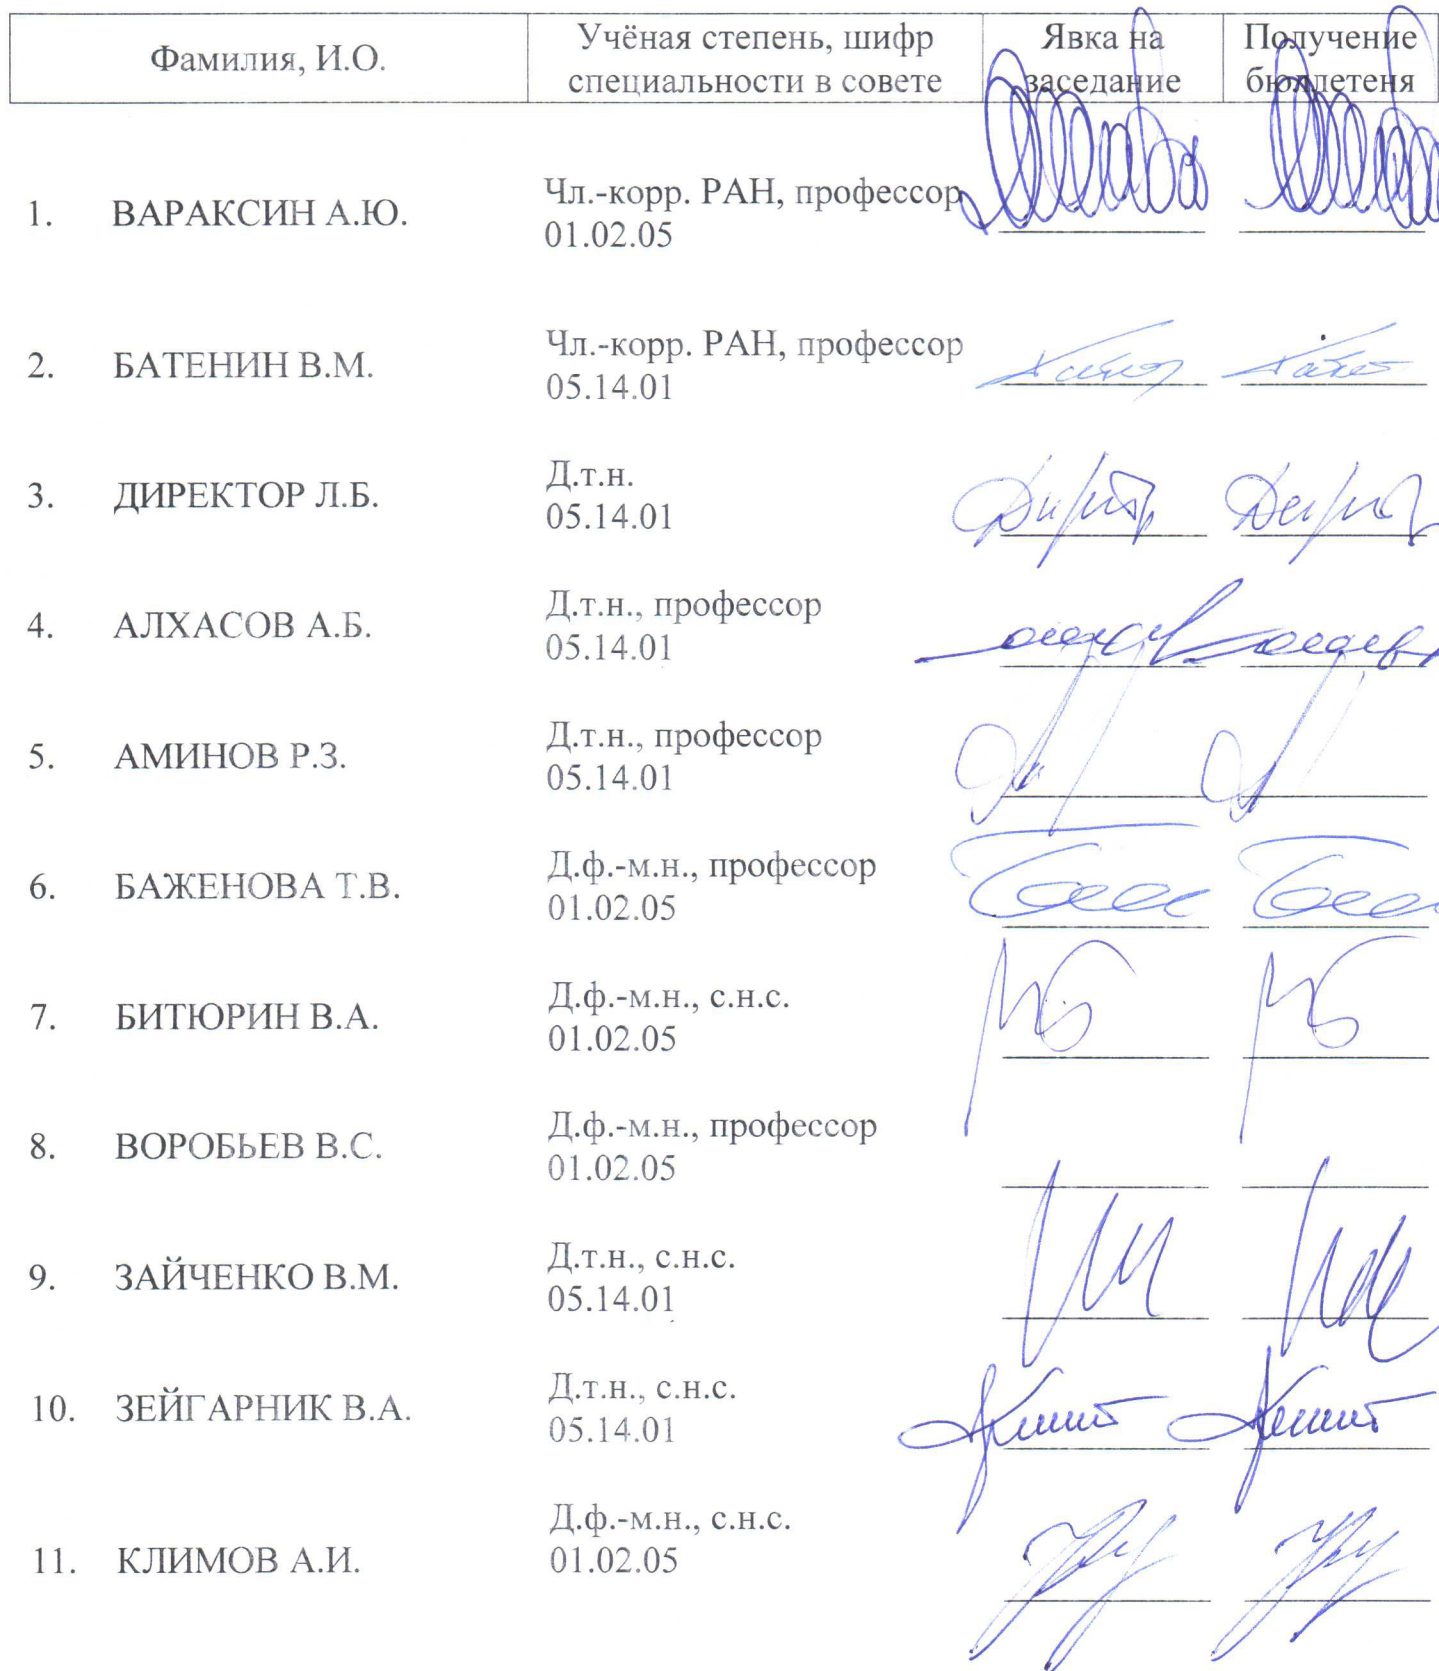 Фамилия, И.О.
Учёная степень, шифр
специальности в совете
Явка на
заседание
Получение
бюллетеня
1. ВАРАКСИН А.Ю.
Чл.-корр. РАН, профессор
01.02.05
2. БАТЕНИН В.М.
Чл.-корр. РАН, профессор
05.14.01
3. ДИРЕКТОР Л.Б.
Д.т.н.
05.14.01
4. АЛХАСОВ А.Б.
Д.т.н., профессор
05.14.01
5. АМИНОВ Р.З.
Д.т.н., профессор
05.14.01
6. БАЖЕНОВА Т.В.
Д.ф.-м.н., профессор
01.02.05
7. БИТЮРИН В.А.
Д.ф.-м.н., с.н.с.
01.02.05
8. ВОРОБЬЕВ В.С.
Д.ф.-м.н., профессор
01.02.05
9. ЗАЙЧЕНКО В.М.
Д.т.н., с.н.с.
05.14.01
10. ЗЕЙГАРНИК В.А.
Д.т.н., с.н.с.
05.14.01
11. КЛИМОВ А.И.
Д.ф.-м.н., с.н.с.
01.02.05